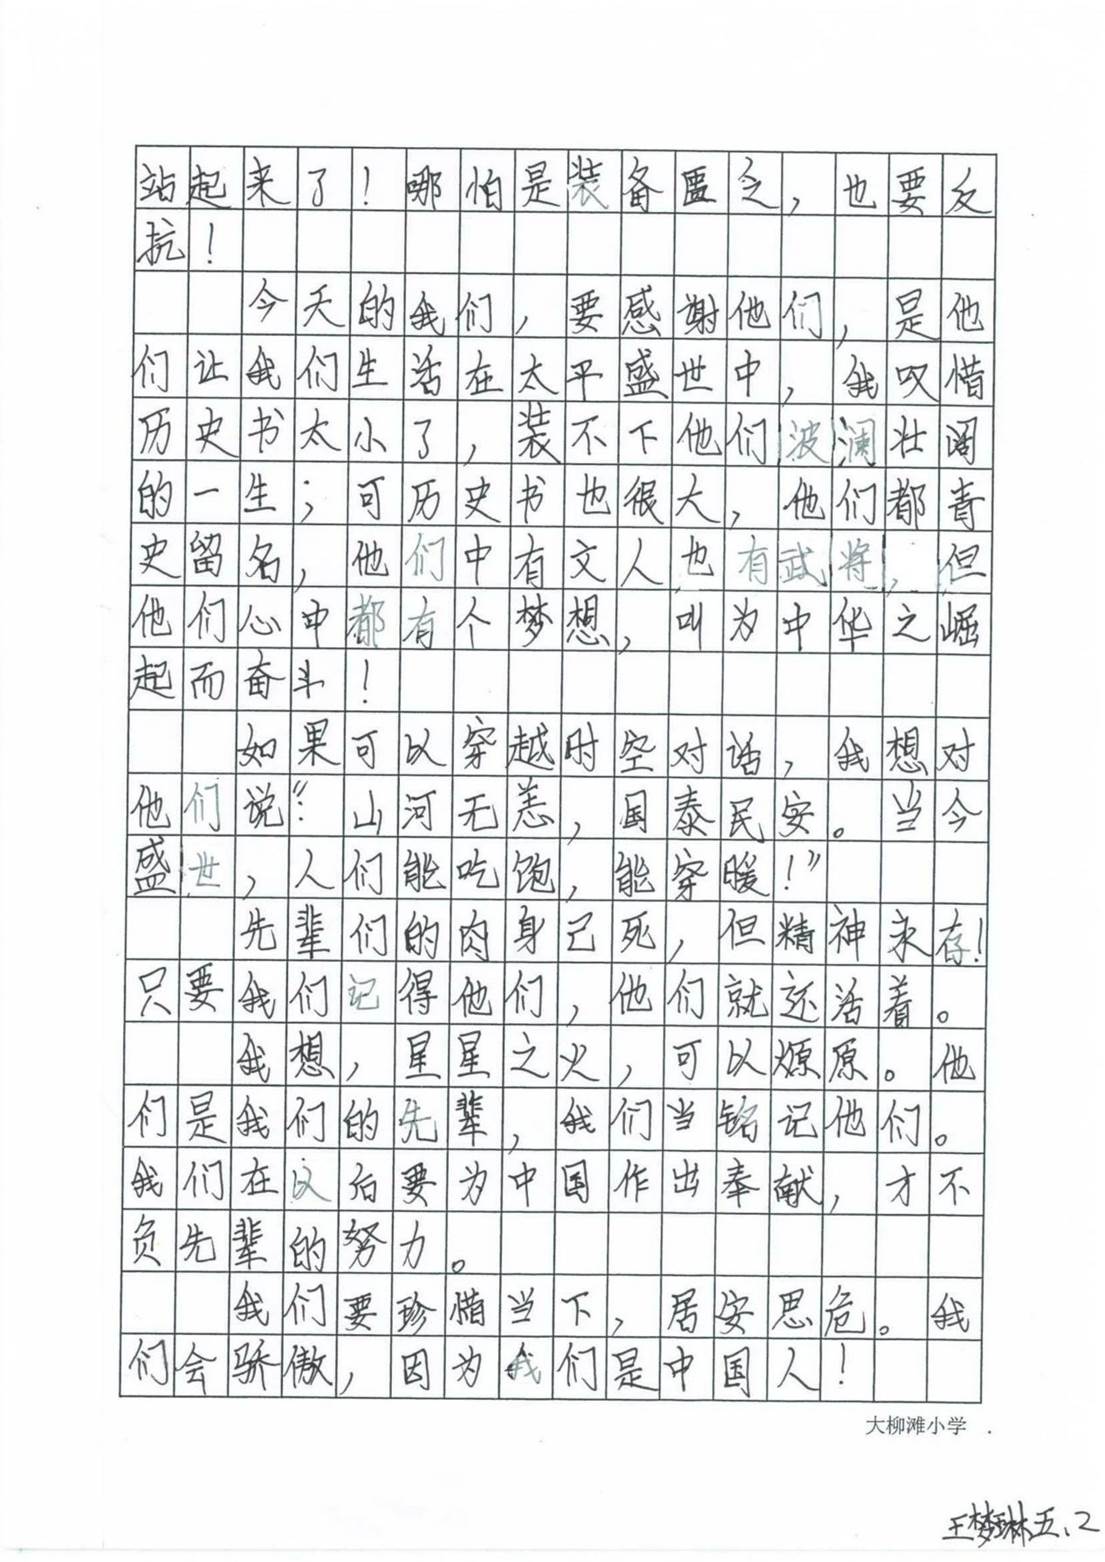 站起来了！哪怕是装备匮乏，也要反
抗！
今天的我们，要感谢他们，是他
们让我们生活在太平盛世中，我叹惜
历史书太小了，装不下他们波澜壮阔
的一生；可历史书也很大，他们都青
史留名，他们中有文人也有武将，但
他们心中都有个梦想，叫为中华之崛
起而奋斗！
如果可以穿越时空对话，我想对
他们说：“山河无恙，国泰民安。当今
盛世，人们能吃饱，能穿暖！”
先辈们的肉身已死，但精神永存！
只要我们记得他们，他们就还活着。
我想，星星之火，可以燎原。他
们是我们的先辈，我们当铭记他们。
我们在以后要为中国作出奉献，才不
负先辈的努力。
我们要珍惜当下，居安思危。我
们会骄傲，因为我们是中国人！
大柳滩小学
王梦琳五、2